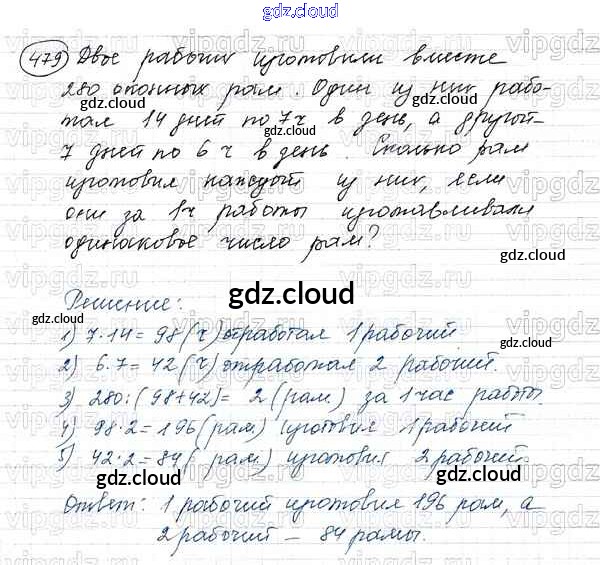 gdz.cloud
479) Двое рабочих изготовили вместе
280 оконных рам. Один из них рабо-
тал 14 дней по 7 ч в день, а другой -
7 дней по 6 ч в день. Сколько рам
изготовил каждый из них, если
они за 1 ч работы изготавливали
одинаковое число рам?
Решение:
1) 7·14 = 98 (ч) отработал 1 рабочий.
2) 6·7 = 42 (ч) отработал 2 рабочий.
3) 280:(98+42) = 2 (рам) за 1 час работы.
4) 98·2 = 196 (рам) изготовил 1 рабочий
5) 42·2 = 84 (рам) изготовил 2 рабочий.
Ответ: 1 рабочий изготовил 196 рам, а
2 рабочий – 84 рамы.